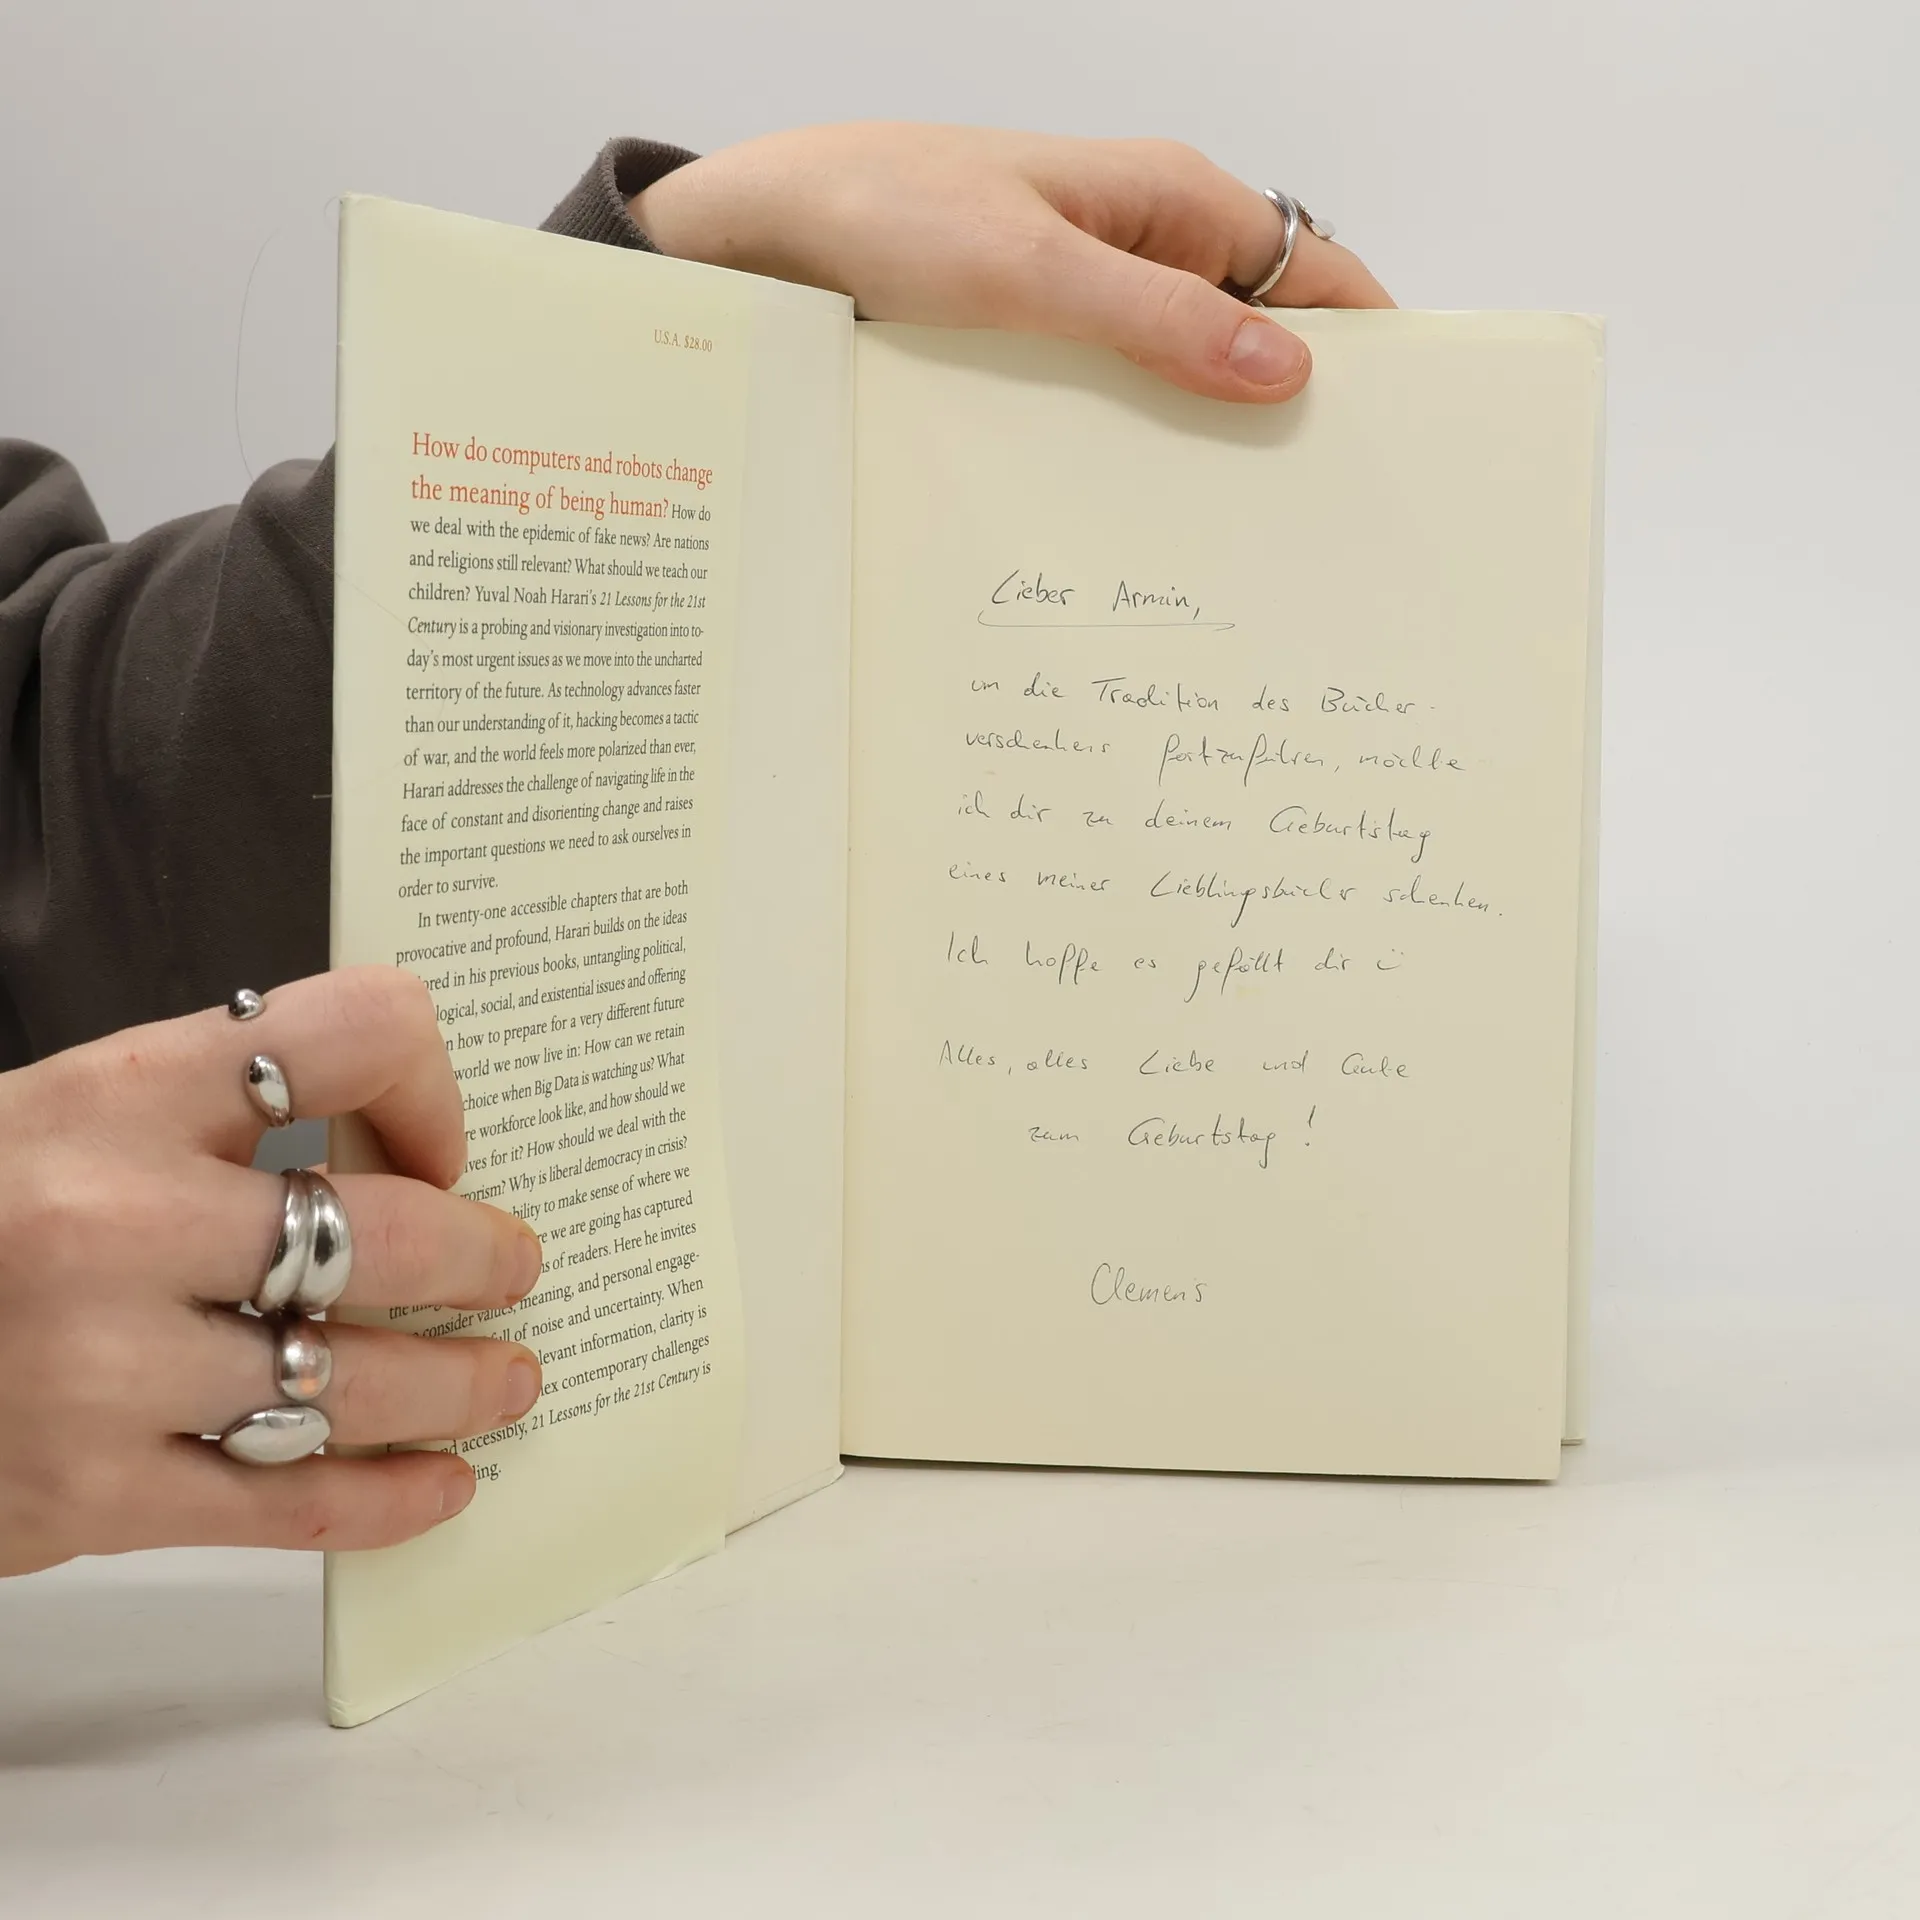 U.S.A. $28.00
How do computers and robots change
the meaning of being human? How do
we deal with the epidemic of fake news? Are nations
and religions still relevant? What should we teach our
children? Yuval Noah Harari's 21 Lessons for the 21st
Century is a probing and visionary investigation into to-
day's most urgent issues as we move into the uncharted
territory of the future. As technology advances faster
than our understanding of it, hacking becomes a tactic
of war, and the world feels more polarized than ever,
Harari addresses the challenge of navigating life in the
face of constant and disorienting change and raises
the important questions we need to ask ourselves in
order to survive.
In twenty-one accessible chapters that are both
provocative and profound, Harari builds on the ideas
in his previous books, untangling political,
social, and existential issues and offering
how to prepare for a very different future
world we now live in: How can we retain
choice when Big Data is watching us? What
workforce look like, and how should we
for it? How should we deal with the
Why is liberal democracy in crisis?
to make sense of where we
we are going has captured
of readers. Here he invites
consider values, meaning, and personal engage-
of noise and uncertainty. When
information, clarity is
contemporary challenges
accessibly, 21 Lessons for the 21st Century is
Lieber Armin,
um die Tradition des Bücher-
verschenkens fortzuführen, möchte
ich dir zu deinem Geburtstag
eines meiner Lieblingsbücher schenken.
Ich hoffe es gefällt dir ü
Alles, alles Liebe und Gute
zum Geburtstag!
Clemens